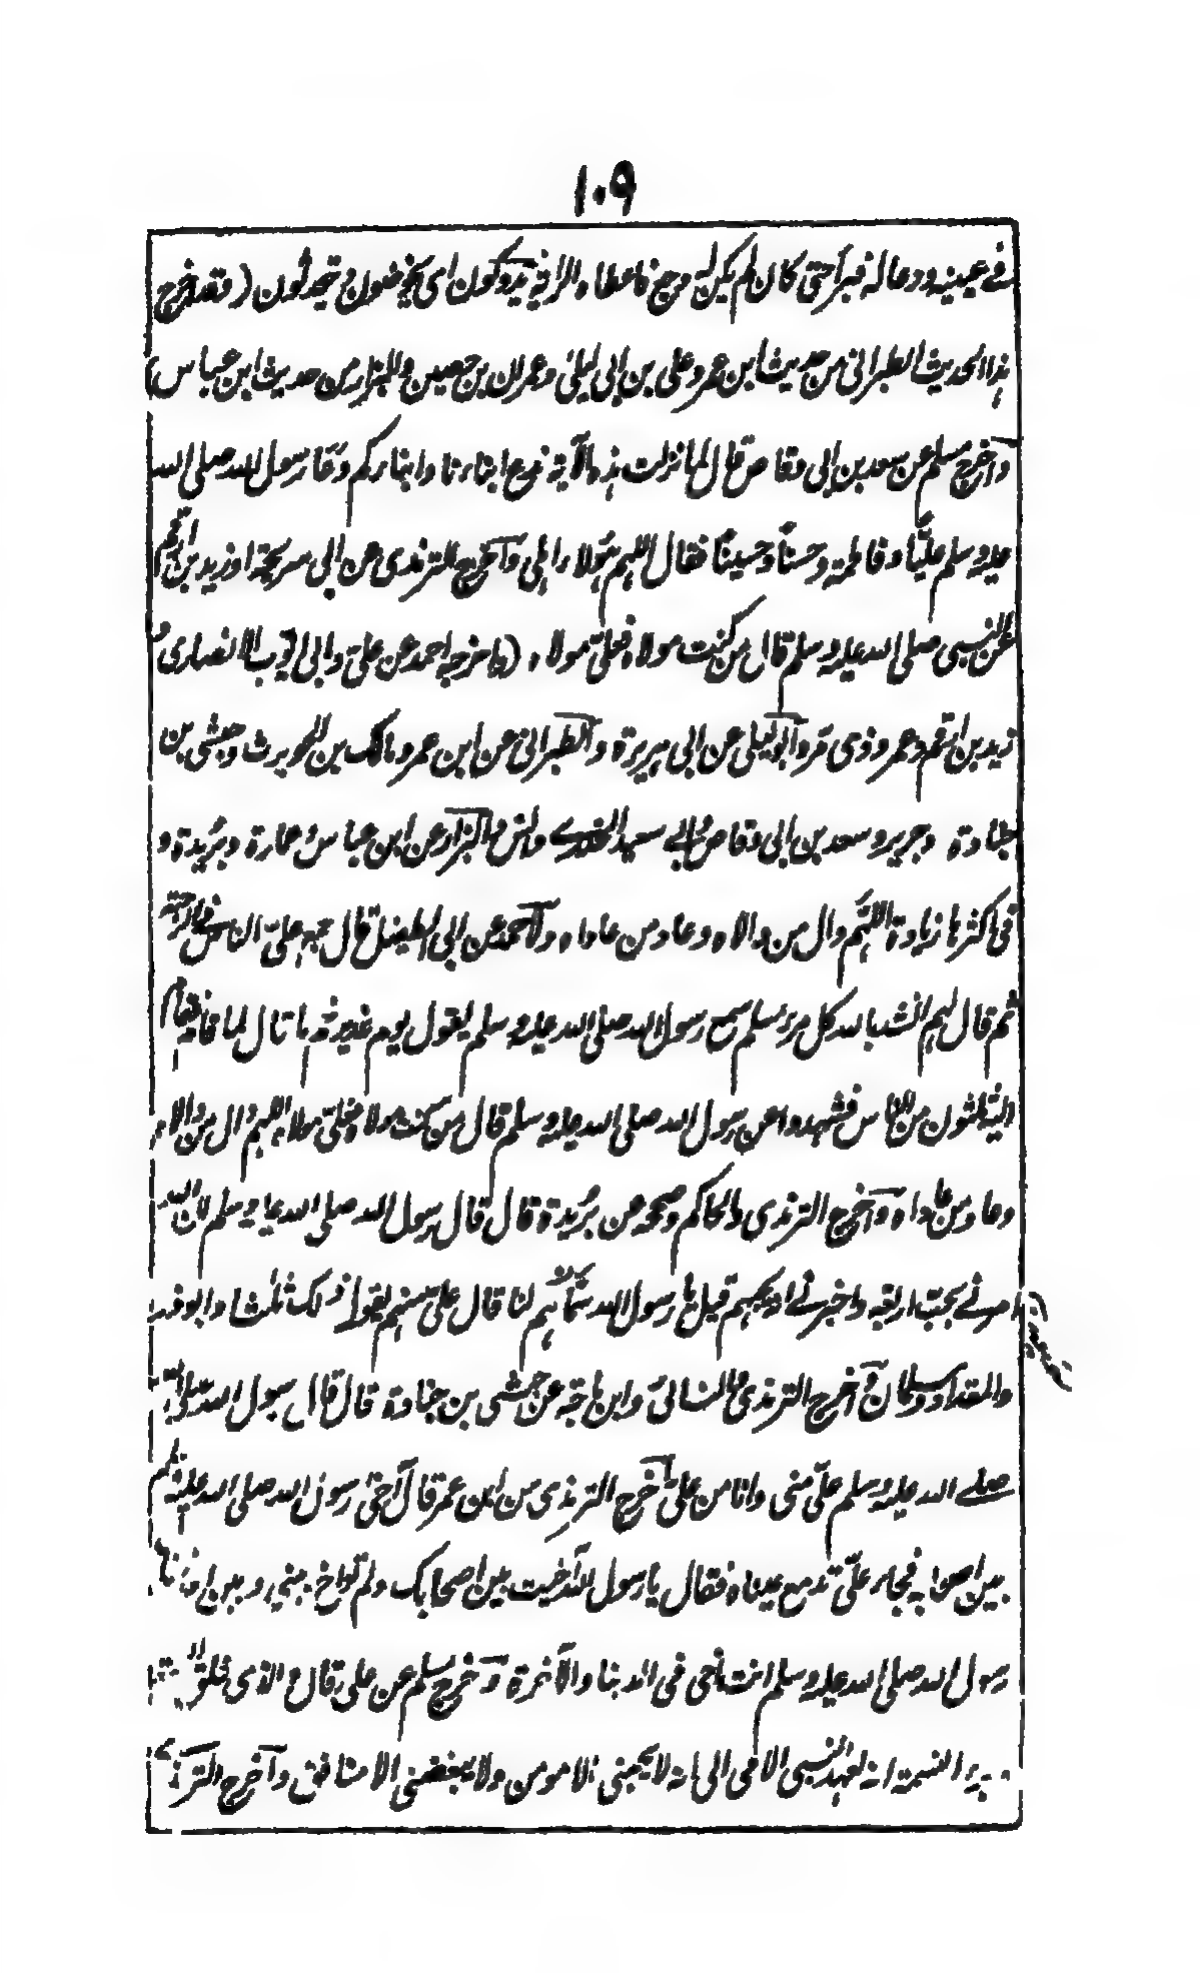 ١٠٩
فى عينيه ودعا له فبرأ حتى كان لم يكن له وجع فاعطاه الراية يدوكون اى يخوضون ويتحدثون (وقد اخرج
هذا الحديث الطبرانى من حديث ابن عمر وعلى بن ابى ليلى وعمران بن حصين والبزار من حديث ابن عباس)
واخرج مسلم عن سعد بن ابى وقاص قال لما نزلت هذه الآية ندع ابناءنا وابناءكم دعا رسول الله صلى الله
عليه وسلم عليًّا وفاطمة وحسنًا وحسينًا فقال اللهم هؤلاء اهلى وآخرج الترمذى عن ابى سريحة او زيد بن ارقم
عن النبى صلى الله عليه وسلم قال من كنت مولاه فعلىّ مولاه (واخرجه احمد عن علىّ وابى ايوب الانصارى و
زيد بن ارقم وعمرو ذى مر وابو يعلى عن ابى هريرة والطبرانى عن ابن عمر ومالك بن الحويرث وحبشى بن
جنادة وجرير وسعد بن ابى وقاص وابى سعيد الخدرى وانس والبزار عن ابن عباس وعمارة وبريدة و
فى اكثرها زيادة اللهم وال من والاه وعاد من عاداه ولاحمد عن ابى الطفيل قال جمع علىّ الناس فى الرحبة
ثم قال لهم انشد بالله كل مرء مسلم سمع رسول الله صلى الله عليه وسلم يقول يوم غدير خم ما قال لما قام فقام
اليه ثلثون من الناس فشهدوا عن رسول الله صلى الله عليه وسلم قال من كنت مولاه فعلىّ مولاه اللهم وال من والاه
وعاد من عاداه وآخرج الترمذى والحاكم وصححه عن بريدة قال قال رسول الله صلى الله عليه وسلم ان الله
امرنى بحب اربعة واخبرنى انه يحبهم قيل يا رسول الله سمهم لنا قال علىّ منهم يقول ذلك ثلثا وابو ذر
والمقداد وسلمان وآخرج الترمذى والنسائى وابن ماجة عن حبشى بن جنادة قال قال رسول الله
صلے الله عليه وسلم علىّ منى وانا من علىّ وآخرج الترمذى عن ابن عمر قال آخى رسول الله صلى الله عليه وسلم
بين اصحابه فجاء علىّ تدمع عيناه فقال يا رسول الله آخيت بين اصحابك ولم تواخ بينى وبين احد فقال
رسول الله صلى الله عليه وسلم انت اخى فى الدنيا والآخرة وآخرج مسلم عن على قال والذى فلق
النسمة انه لعهد النبى الامى الى انه لا يحبنى الا مومن ولا يبغضنى الا منافق وآخرج الترمذى